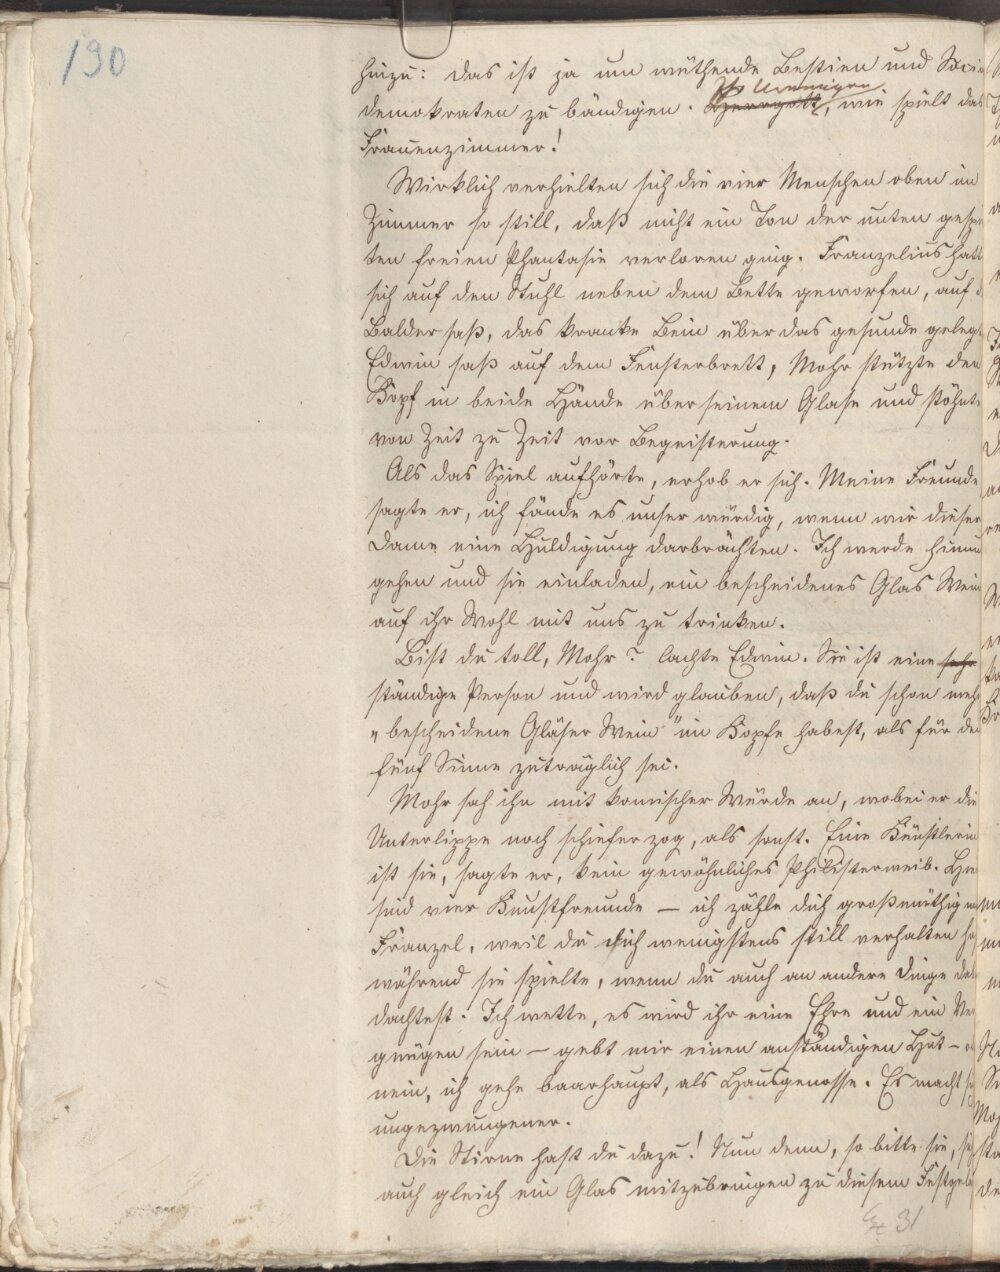 190
hinzu: das ist ja um wüthende Bestien und Socia
demokraten zu bändigen. Ihr Unsterblichen, wie spielt das
Frauenzimmer!
Wirklich verhielten sich die vier Menschen oben im
Zimmer so still, daß nicht ein Ton der unten gespi
ten freien Phantasie verloren ging. Franzelius hatt
sich auf den Stuhl neben dem Bette geworfen, auf
Balder saß, das kranke Bein über das gesunde geleg
Edwin saß auf dem Fensterbrett, Mohr stützte den
Kopf in beide Hände über seinem Glase und stöhnte
von Zeit zu Zeit vor Begeisterung.
Als das Spiel aufhörte, erhob er sich. Meine Freunde
sagte er, ich fände es unser würdig, wenn wir dieser
Dame eine Huldigung darbrächten. Ich werde hinun
gehen und sie einladen, ein bescheidenes Glas Wein
auf ihr Wohl mit uns zu trinken.
Bist du toll, Mohr? lachte Edwin. Sie ist eine sehr
ständige Person und wird glauben, daß du schon meh
„bescheidene Gläser Wein" im Kopfe habest, als für de
fünf Sinne zuträglich sei.
Mohr sah ihn mit komischer Würde an, wobei er die
Unterlippe noch schiefer zog, als sonst. Eine Künstlerin
ist sie, sagte er, kein gewöhnliches Philisterweib. Hie
sind vier Kunstfreunde — ich zähle dich großmüthig m
Franzel, weil du dich wenigstens still verhalten ha
während sie spielte, wenn du auch an andere Dinge da
dachtest. Ich wette, es wird ihr eine Ehre und ein Ve
gnügen sein — gebt mir einen anständigen Hut — o
nein, ich gehe baarhaupt, als Hausgenosse. Es macht s
ungezwungener.
Die Stirne hast du dazu! Nun denn, so bitte sie, si
auch gleich ein Glas mitzubringen zu diesem Festgela
31